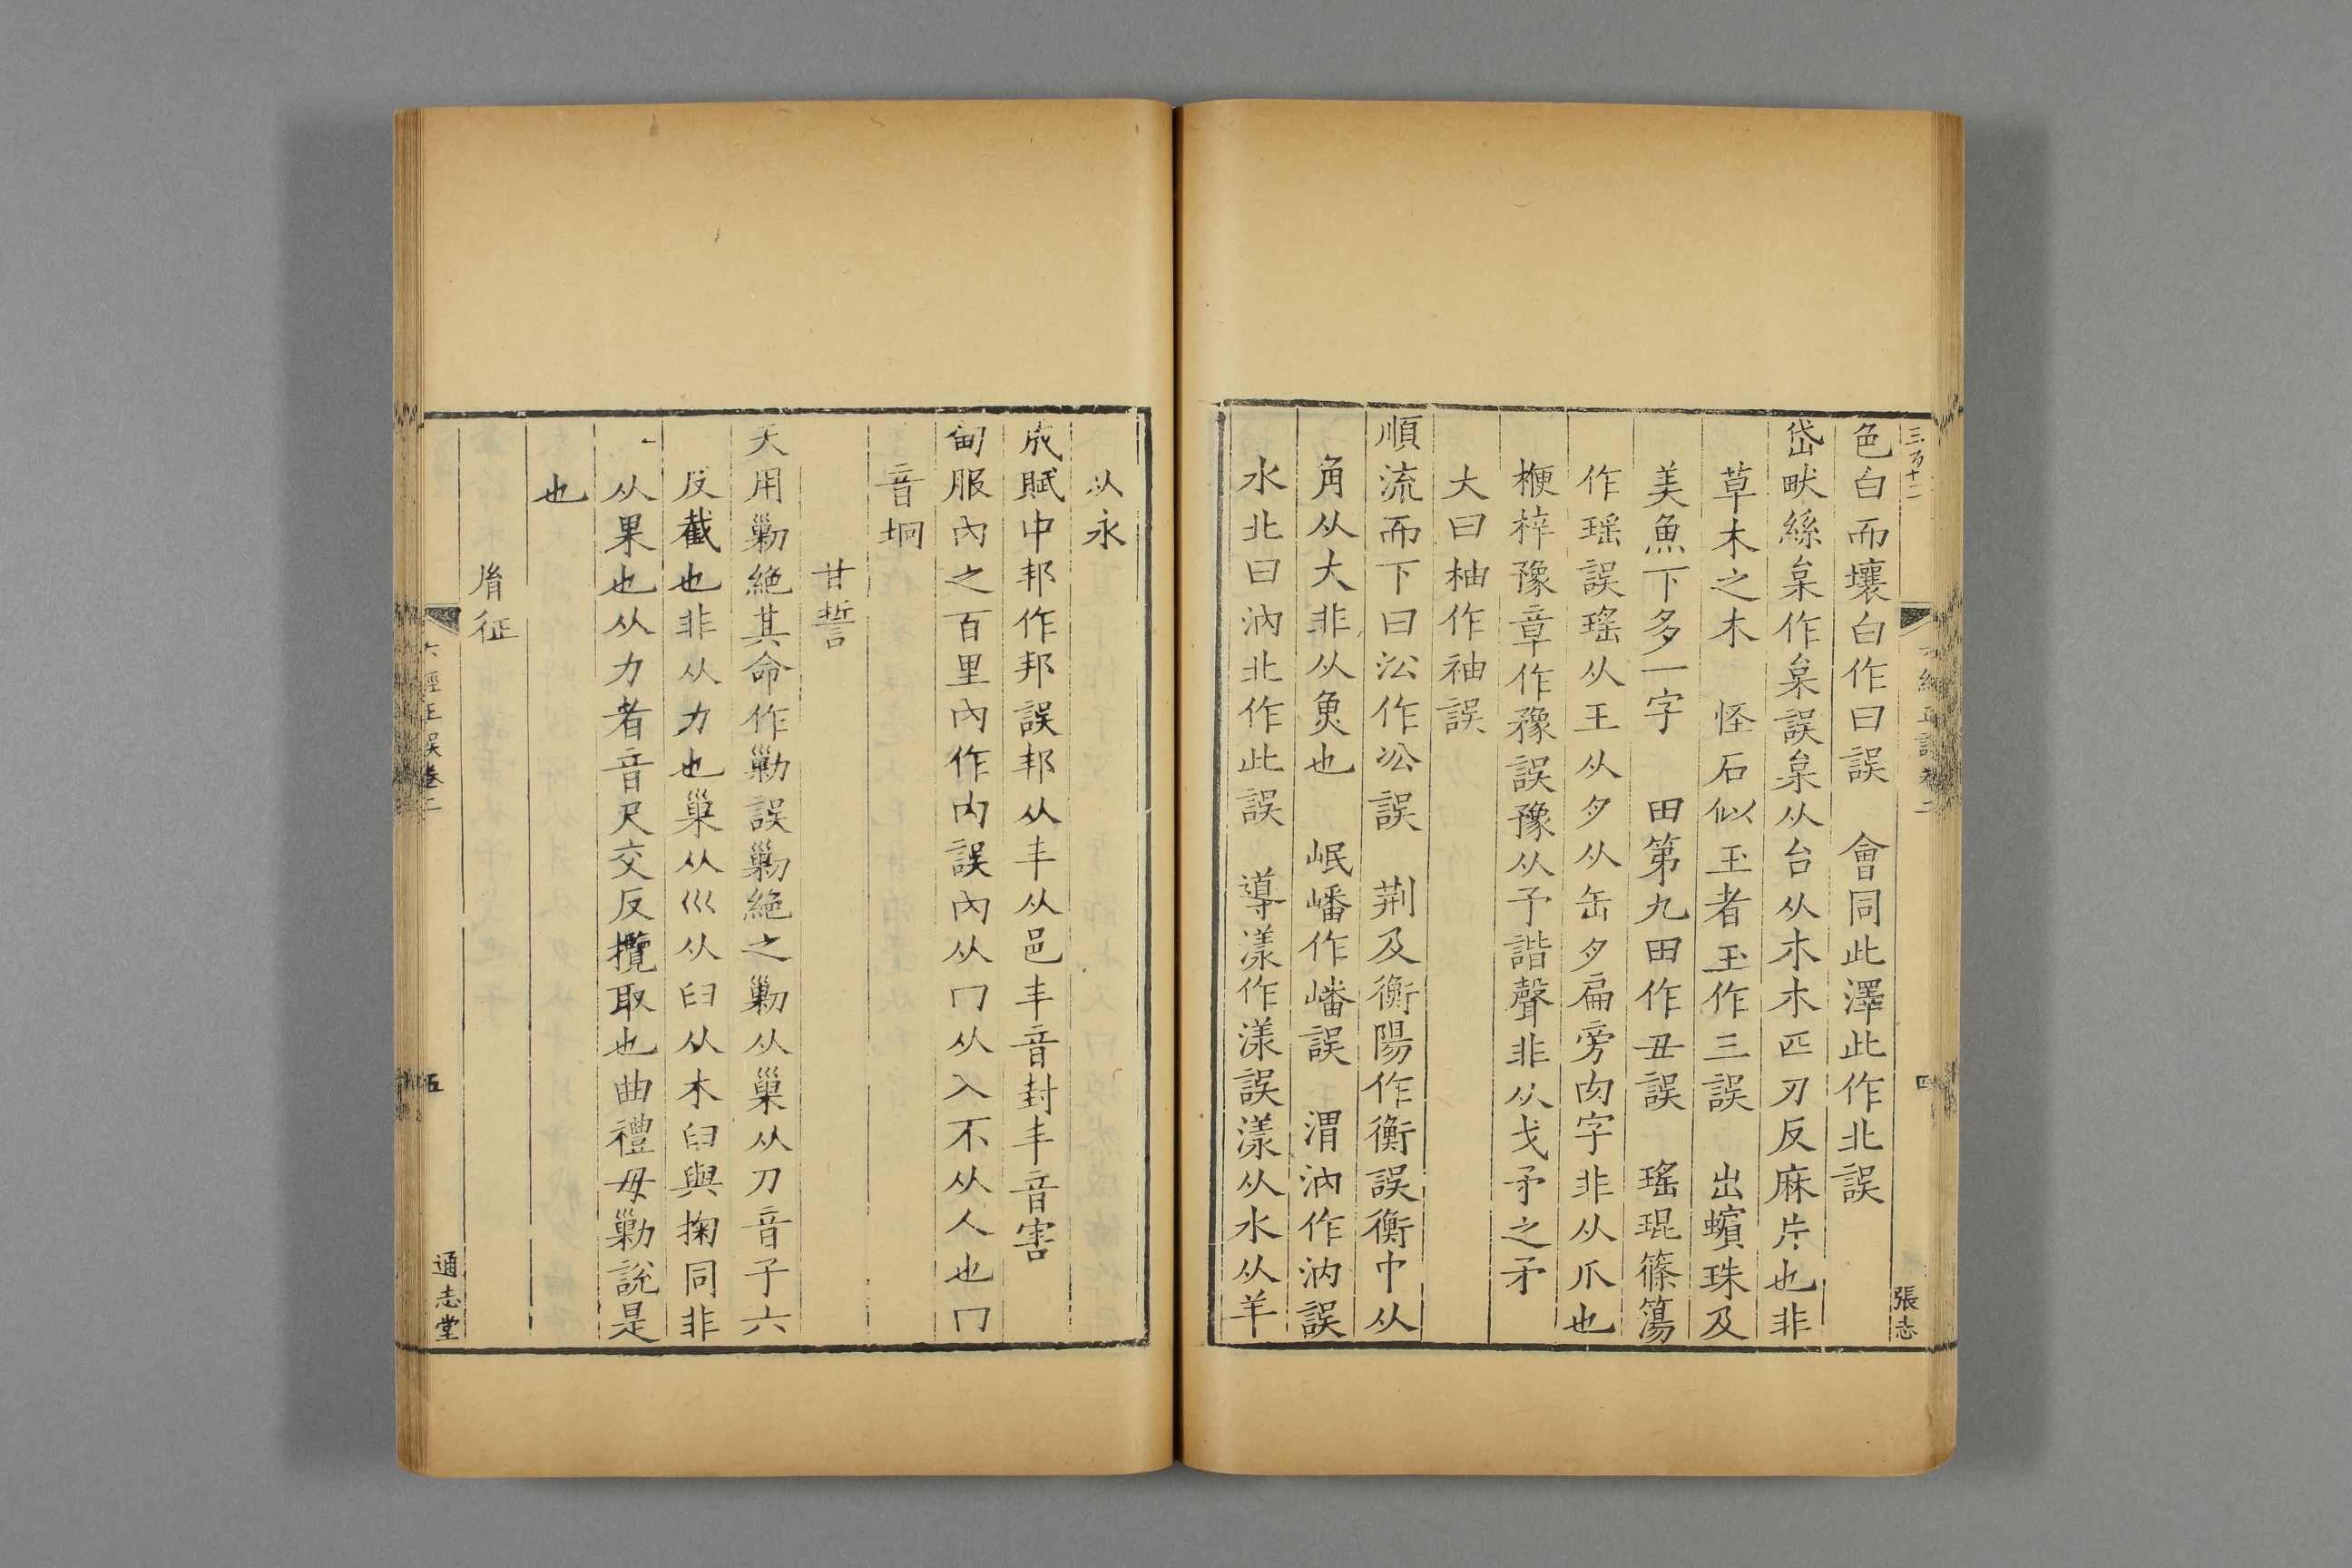 色白而壤白作曰誤　會同此澤此作北誤
岱畎絲枲作枲誤枲从台从木木匹刃反麻片也非
草木之木　怪石似玉者玉作三誤　出蠙珠及
美魚下多一字　田第九田作丑誤　瑤琨篠簜
作瑶誤瑤从王从夕从缶夕扁旁肉字非从爪也
楩梓豫章作豫誤豫从予諧聲非从戈矛之矛
大曰柚作袖誤
順流而下曰㳂作㳂誤　荆及衡陽作衡誤衡中从
角从大非从魚也　岷嶓作嶓誤　渭汭作汭誤
水北曰汭北作此誤　導漾作漾誤漾从水从羊
从永
成賦中邦作邦誤邦从丰从邑丰音封丰音害
甸服內之百里內作内誤內从冂从入不从人也冂
音坰
甘誓
天用勦絕其命作勦誤勦絕之勦从巢从刀音子六
反截也非从力也巢从巛从臼从木臼與掬同非
从果也从力者音尺交反攬取也曲禮毋勦說是
也
胤征
六經正誤卷二
五
通志堂
四
張志